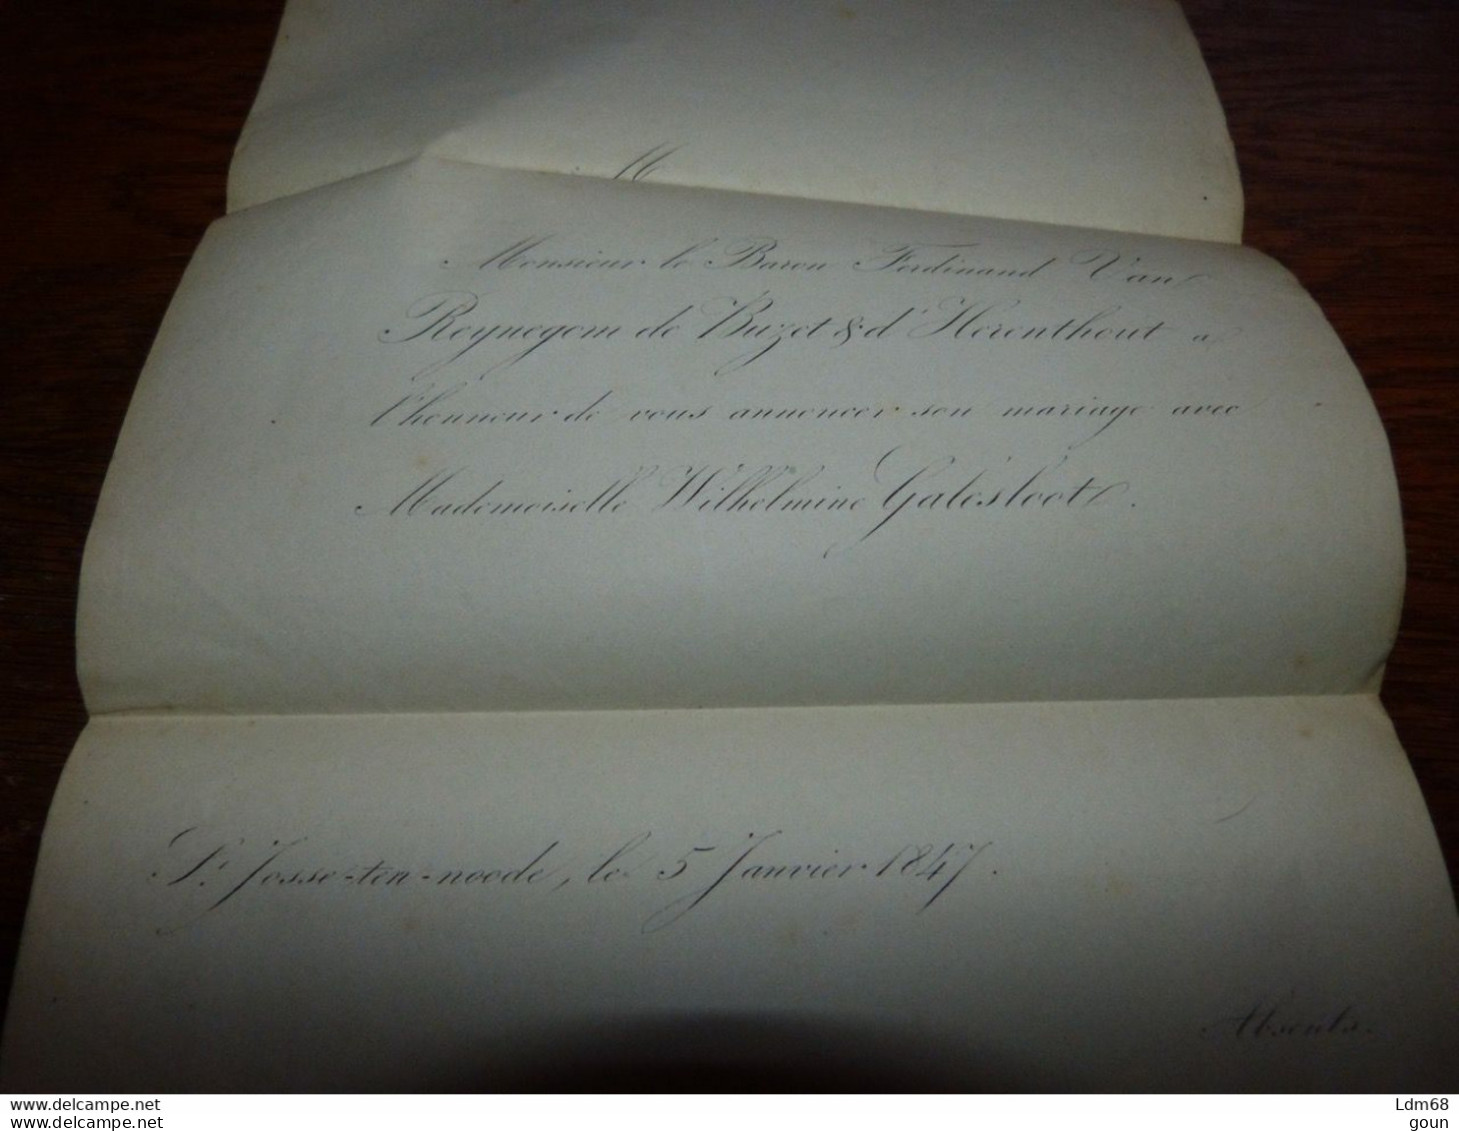 M
Monsieur le Baron Ferdinand Van
Reynegom de Buzet & d'Herenthout a
l'honneur de vous annoncer son mariage avec
Mademoiselle Wilhelmine Galesloot.
St. Josse-ten-noode, le 5 Janvier 1847.
Absents.
www.delcampe.net
www.delcampe.net
Ldm68
goun